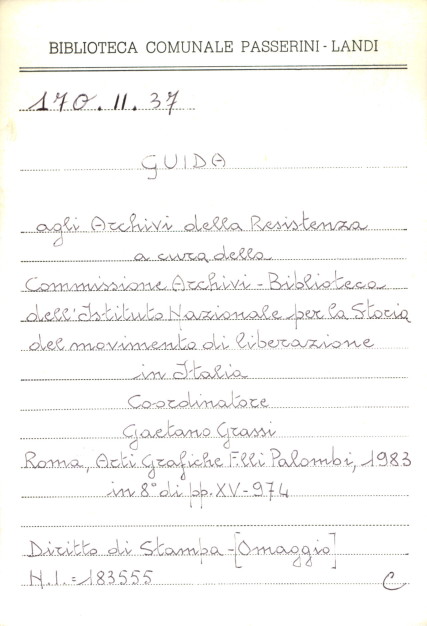 BIBLIOTECA COMUNALE PASSERINI - LANDI
170.II.37
GUIDA
agli Archivi della Resistenza
a cura della
Commissione Archivi - Biblioteca
dell'Istituto Nazionale per la Storia
del movimento di liberazione
in Italia
Coordinatore
Gaetano Grassi
Roma, Arti Grafiche F.lli Palombi, 1983
in 8° di pp. XV-974
Diritto di Stampa - [Omaggio]
N.I. = 183555 C